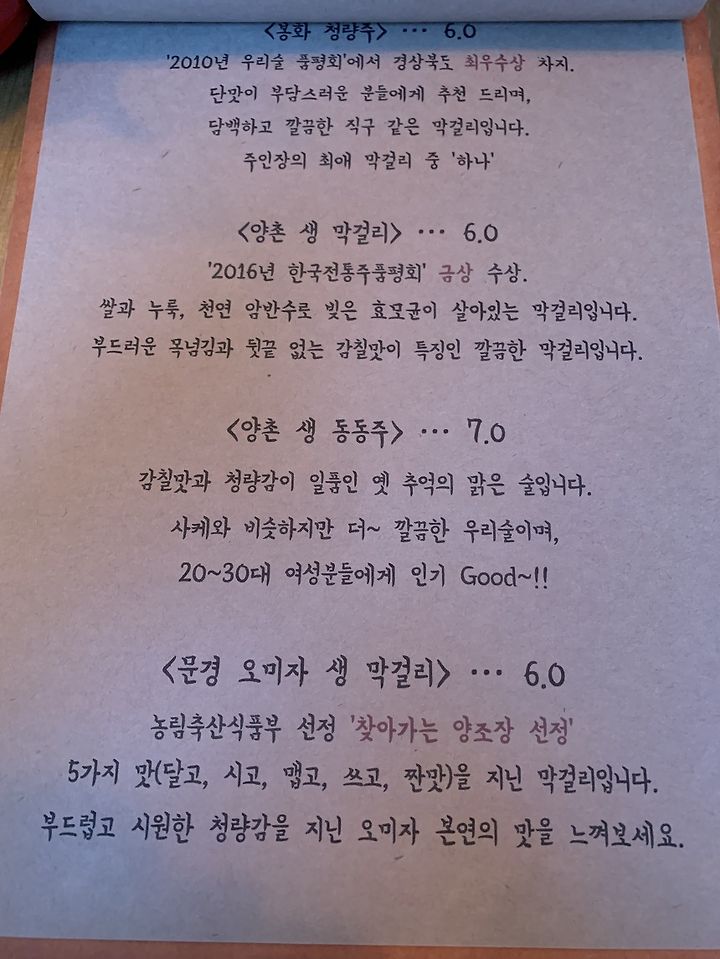 <봉화 청량주> ··· 6.0
'2010년 우리술 품평회'에서 경상북도 최우수상 차지.
단맛이 부담스러운 분들에게 추천 드리며,
담백하고 깔끔한 직구 같은 막걸리입니다.
주인장의 최애 막걸리 중 '하나'
<양촌 생 막걸리> ··· 6.0
'2016년 한국전통주품평회' 금상 수상.
쌀과 누룩, 천연 암반수로 빚은 효모균이 살아있는 막걸리입니다.
부드러운 목넘김과 뒷끝 없는 감칠맛이 특징인 깔끔한 막걸리입니다.
<양촌 생 동동주> ··· 7.0
감칠맛과 청량감이 일품인 옛 추억의 맑은 술입니다.
사케와 비슷하지만 더~ 깔끔한 우리술이며,
20~30대 여성분들에게 인기 Good~!!
<문경 오미자 생 막걸리> ··· 6.0
농림축산식품부 선정 '찾아가는 양조장 선정'
5가지 맛(달고, 시고, 맵고, 쓰고, 짠맛)을 지닌 막걸리입니다.
부드럽고 시원한 청량감을 지닌 오미자 본연의 맛을 느껴보세요.